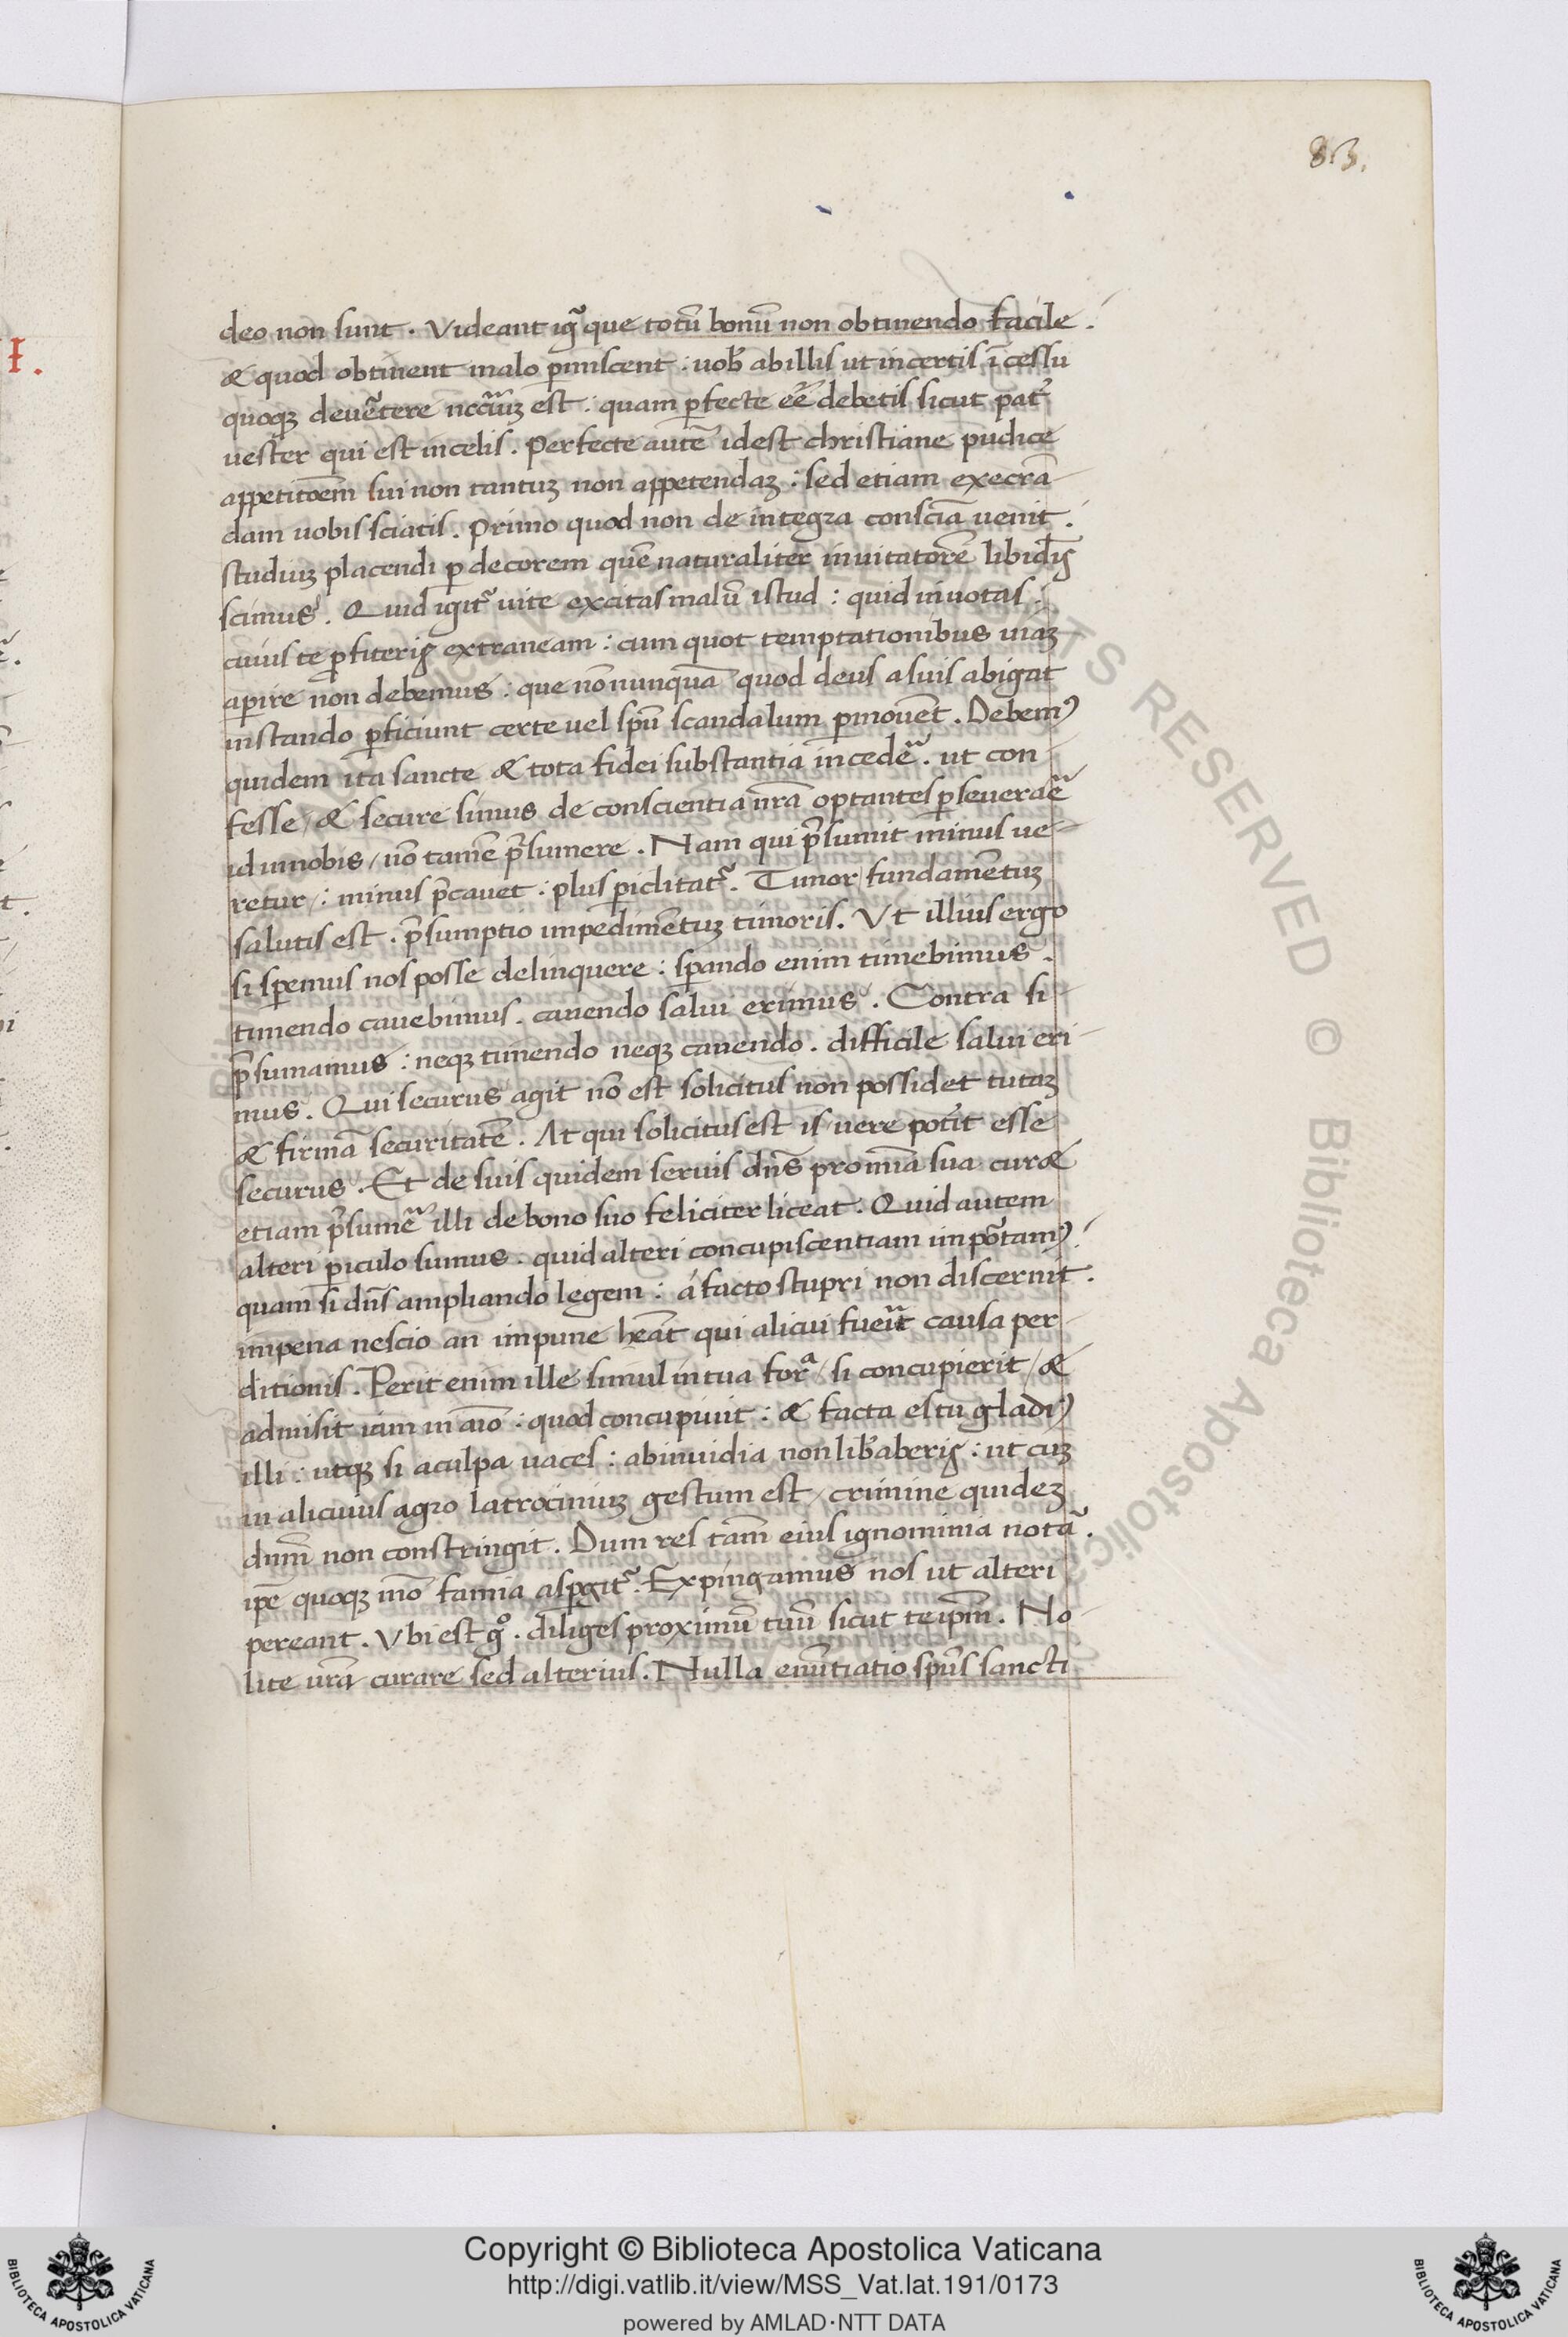 83.
I.
deo non sunt. Videant igr̃ que totũ bonũ non obtinendo facile.
& quod obtinent malo p̱miscent: uob̃ ab illis ut incertis ĩcessu
quoqꝫ deuẽtere nccãriuꝫ est: quam p̱fecte eẽ debetis sicut pat̃
uester qui est in celis. Perfecte autẽ idest christiane pudice
appetitoẽm sui non tantuꝫ non appetendaꝫ: sed etiam execrã
dam uobis sciatis. Primo quod non de integra consciã uenit.
studiuꝫ placendi p̱ decorem quẽ naturaliter inuitatorẽ libidĩs
scimus. Quid igit̃ uite excitas malũ istud: quid inuotas:
cuius te p̱fiteris extraneam: cum quot temptationibus uiaꝫ
aperire non debemus: que nõnunquã quod deus a suis abigat
instando p̱ficiunt certe uel spũ scandalum p̱mouẽt. Debemꝰ
quidem ita sancte & tota fidei substantia incedẽ. ut con
fesse/ & secure simus de conscientia nr̃a optantes p̱seueraẽ
id in nobis/ nõ tamẽ p̃sumere. Nam qui p̃sumit minus ue
retur/: minus p̃cauet: plus p̱iclitat̃. Timor fundamẽtuꝫ
salutis est. p̃sumptio impedimẽtuꝫ timoris. Vt illius ergo
si sp̱emus nos posse delinquere: sp̱ando enim timebimus.
timendo cauebimus. cauendo salui erimus. Contra si
p̃sumamus: neqꝫ timendo neqꝫ cauendo. difficile salui eri
mus. Qui securus agit nõ est solicitus non possidet tutaꝫ
& firmã securitatẽ. At qui solicitus est is uere pot̃it esse
securus. Et de suis quidem seruis dñs pro mĩa sua cur&
etiam p̃sumẽ illi de bono suo feliciter liceat. Quid autem
alteri p̱iculo sumus. quid alteri concupiscentiam impõtamꝰ.
quam si dñs ampliando legem: á facto stupri non discernit.
in pena nescio an impune hẽat qui alicui fueĩt causa per
ditionis. Perit enim ille simul in tua forᵃ/ si concupierit/ &
admisit iam in aĩo: quod concupiuit: & facta es tu gladiꝰ
illi: utqꝫ si a culpa uaces: ab inuidia non lib̃aberis: ut cuꝫ
in alicuius agro latrociniuꝫ gestum est/ crimine quideꝫ
dñm non constringit. Dum res tam̃ eius ignominia notã.
ip̃e quoqꝫ ĩnõ famia asp̱git̃. Expingamus nos ut alteri
pereant. Vbi est gº. diliges proximũ tuũ sicut teip̃m. No
lite ur̃a curare sed alterius. Nulla enũtiatio spũs sancti
RIGHTS RESERVED © Biblioteca Apostolica
Copyright © Biblioteca Apostolica Vaticana
http://digi.vatlib.it/view/MSS_Vat.lat.191/0173
powered by AMLAD·NTT DATA
BIBLIOTECA APOSTOLICA VATICANA
BIBLIOTECA APOSTOLICA VATICANA